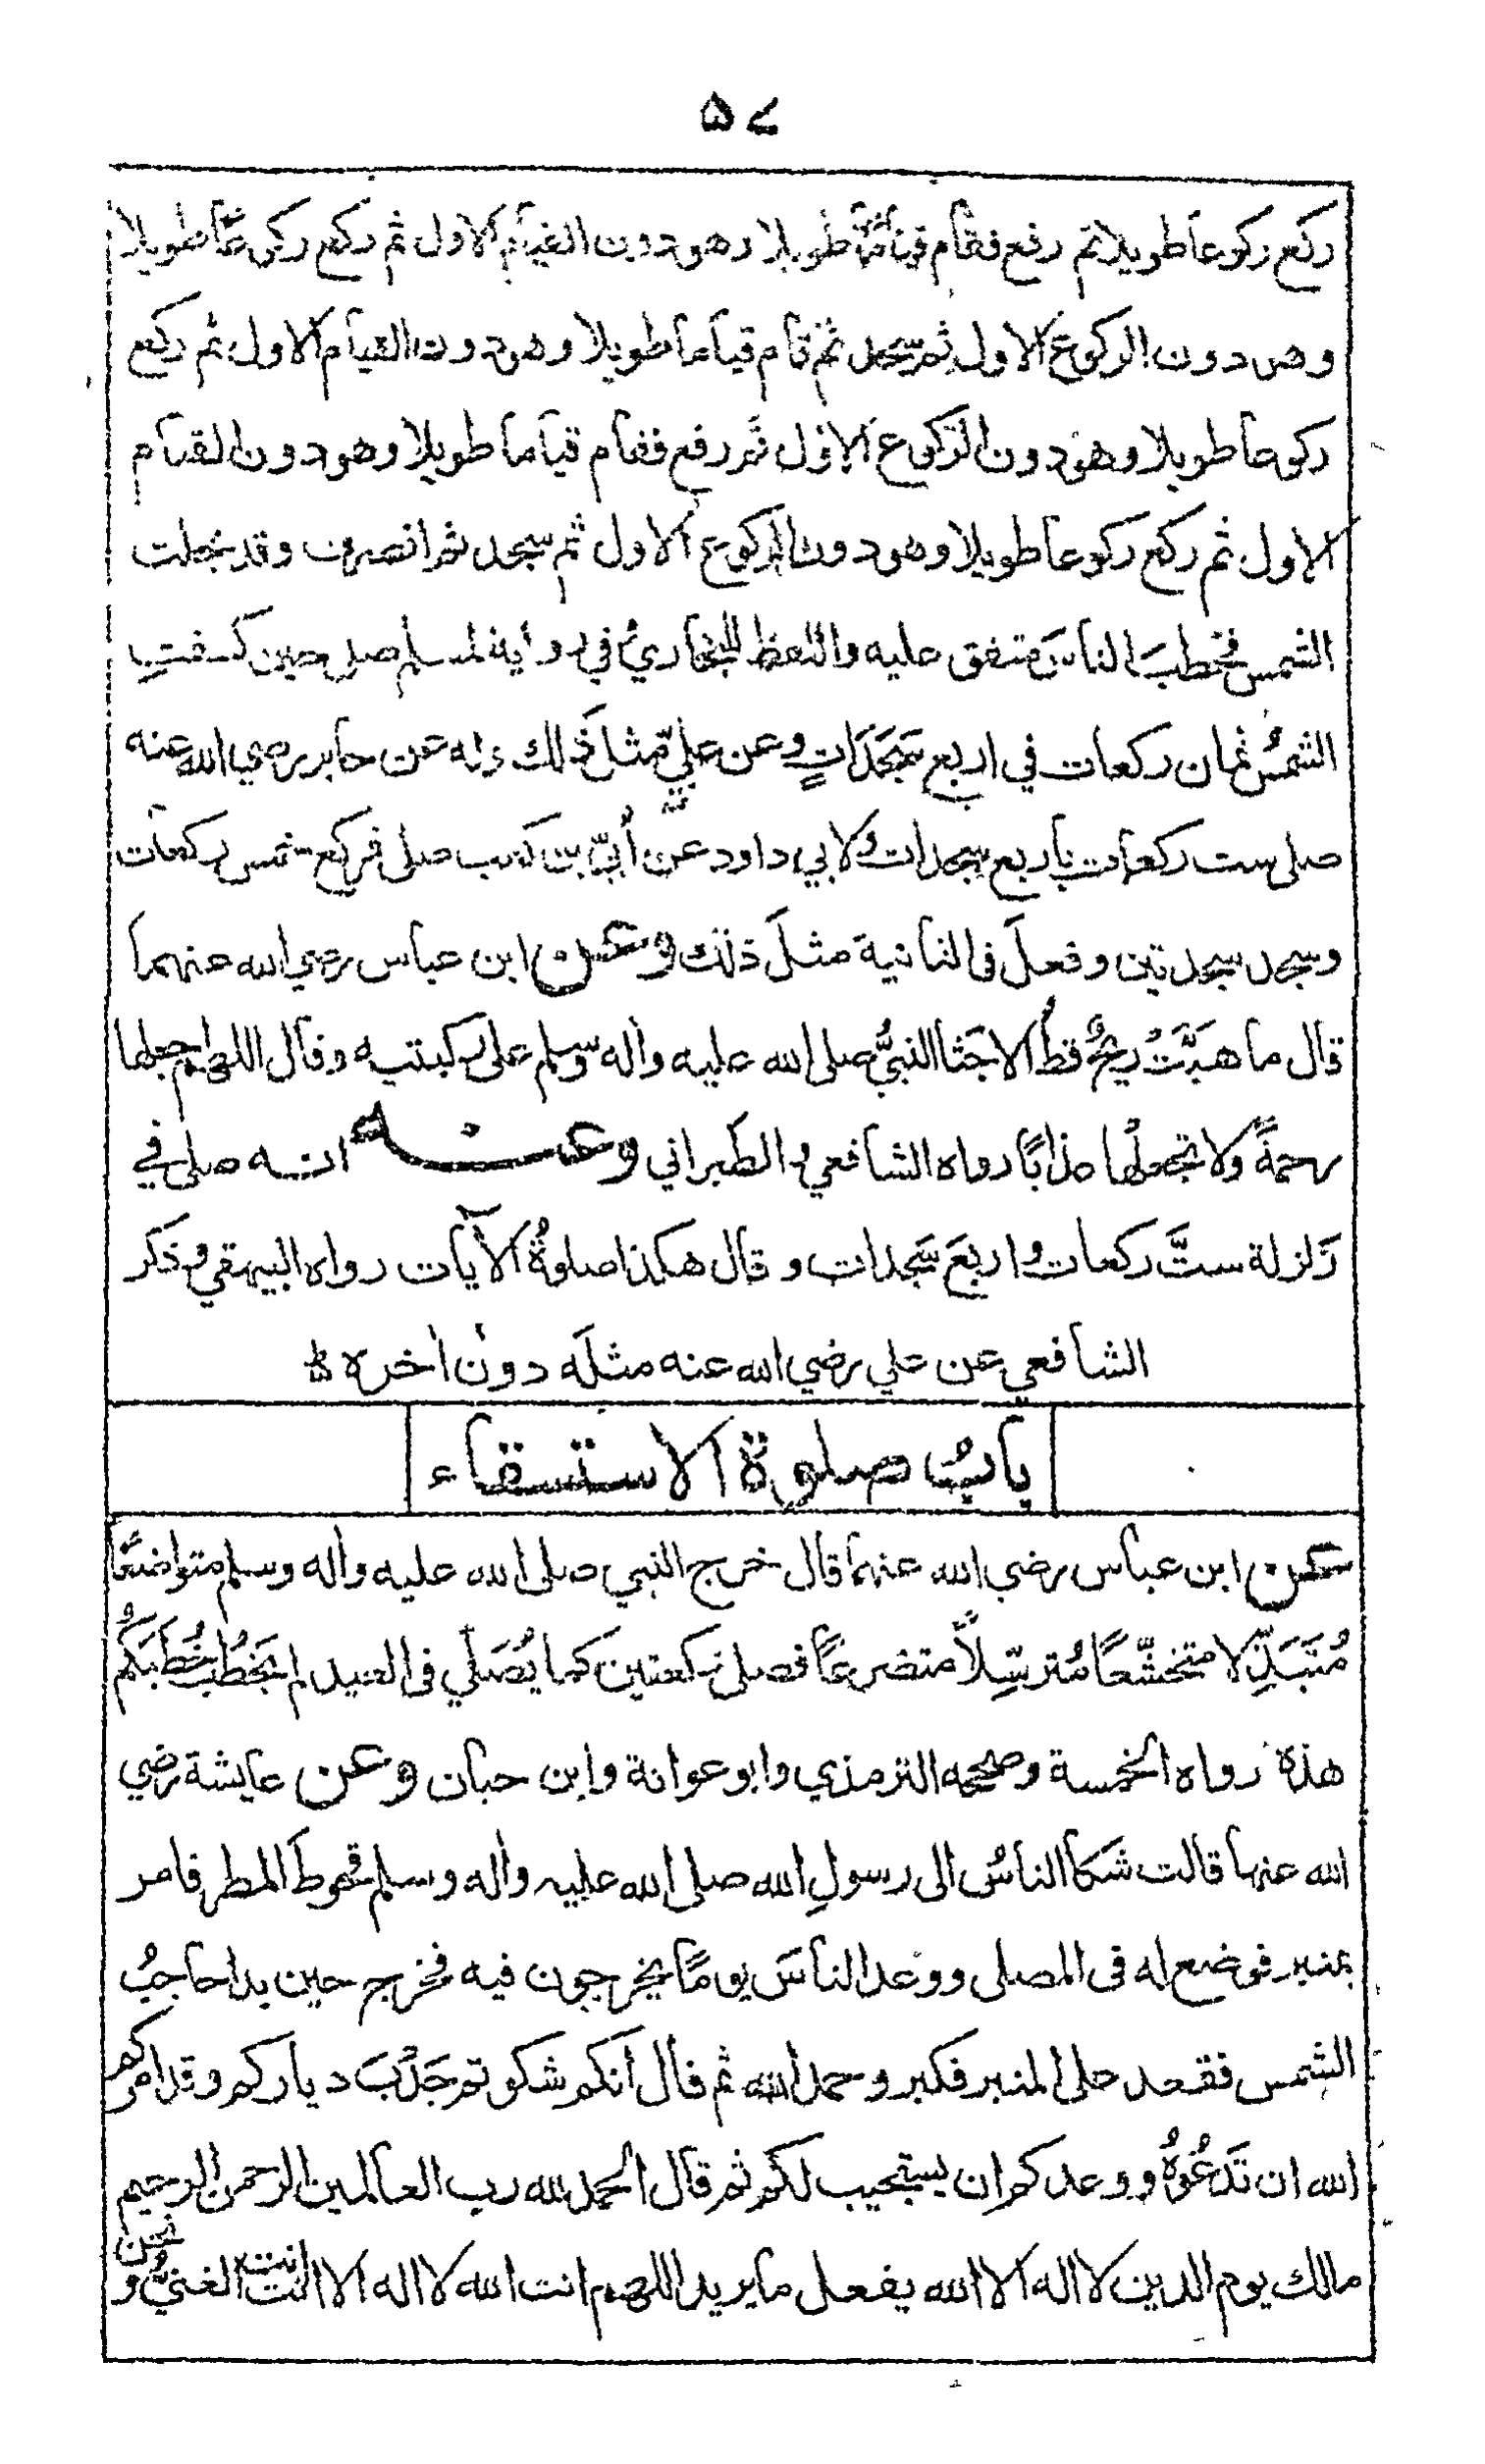 ۵۷
ركع ركوعا طويلا ثم رفع فقام قياما طويلا وهو دون القيام الاول ثم ركع ركوعا طويلا
وهو دون الركوع الاول ثم سجد ثم قام قياما طويلا وهو دون القيام الاول ثم ركع
ركوعا طويلا وهو دون الركوع الاول ثم رفع فقام قياما طويلا وهو دون القيام
الاول ثم ركع ركوعا طويلا وهو دون الركوع الاول ثم سجد ثم انصرف وقد تجلت
الشمس فخطب الناسَ متفق عليه واللفظ للبخاري وفي رواية لمسلم صلى حين كسفتِ
الشمسُ ثمان ركعات في اربع سَجَدَاتٍ وعن عليّ مثل ذلك وله عن جابر رضي الله عنه
صلى ست ركعات باربع سجدات ولابي داود عن أُبَيّ بن كعب صلى فركع خمس ركعات
وسجد سجدتين وفعلَ في الثانية مثلَ ذلك وعن ابن عباس رضي الله عنهما
قال ما هَبَّتْ ريحٌ قطُّ الا جَثا النبيُّ صلى الله عليه واله وسلم على ركبتيه وقال اللهم اجعلها
رحمةً ولا تجعلْها عذابًا رواه الشافعي والطبراني وعنه انه صلى في
زَلزلة ستَّ ركعات واربعَ سَجدات وقال هكذا صلوةُ الآيات رواه البيهقي وذكر
الشافعي عن علي رضي الله عنه مثلَه دونَ اٰخره
بابُ صلوة الاستسقاء
عن ابن عباس رضي الله عنهما قال خرج النبي صلى الله عليه واله وسلم متواضعًا
مُتَبَذِّلا متخشّعًا مُترسِّلاً متضرعًا فصلى ركعتين كما يُصَلّي في العيد لم يَخطُب خُطبَتَكُم
هذه رواه الخمسة وصححه الترمذي وابو عوانة وابن حبان وعن عايشة رضي
الله عنها قالت شكا الناسُ الى رسولِ الله صلى الله عليه واله وسلم قحوطَ المطر فامر
بمنبر فوضع له في المصلى ووعد الناسَ يومًا يخرجون فيه فخرج حين بدا حاجبُ
الشمس فقعد على المنبر فكبر وحمد الله ثم قال انكم شكوتم جَدْبَ دياركم وقد امركم
الله ان تَدعُوْهُ ووعدكم ان يستجيب لكم ثم قال الحمد لله رب العالمين الرحمن الرحيم
مالك يوم الدين لا اله الا الله يفعل ما يريد اللهم انت الله لا اله الا انت انت الغنيُّ ونحن